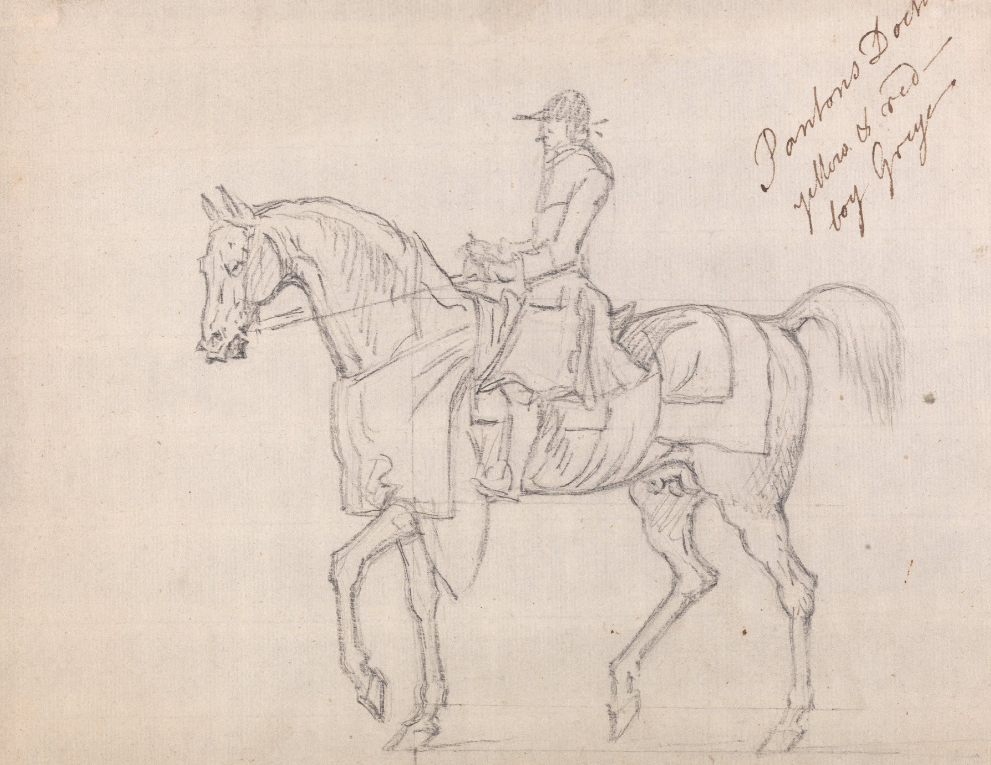 Pantons Doctor
yellow & red
boy Greye